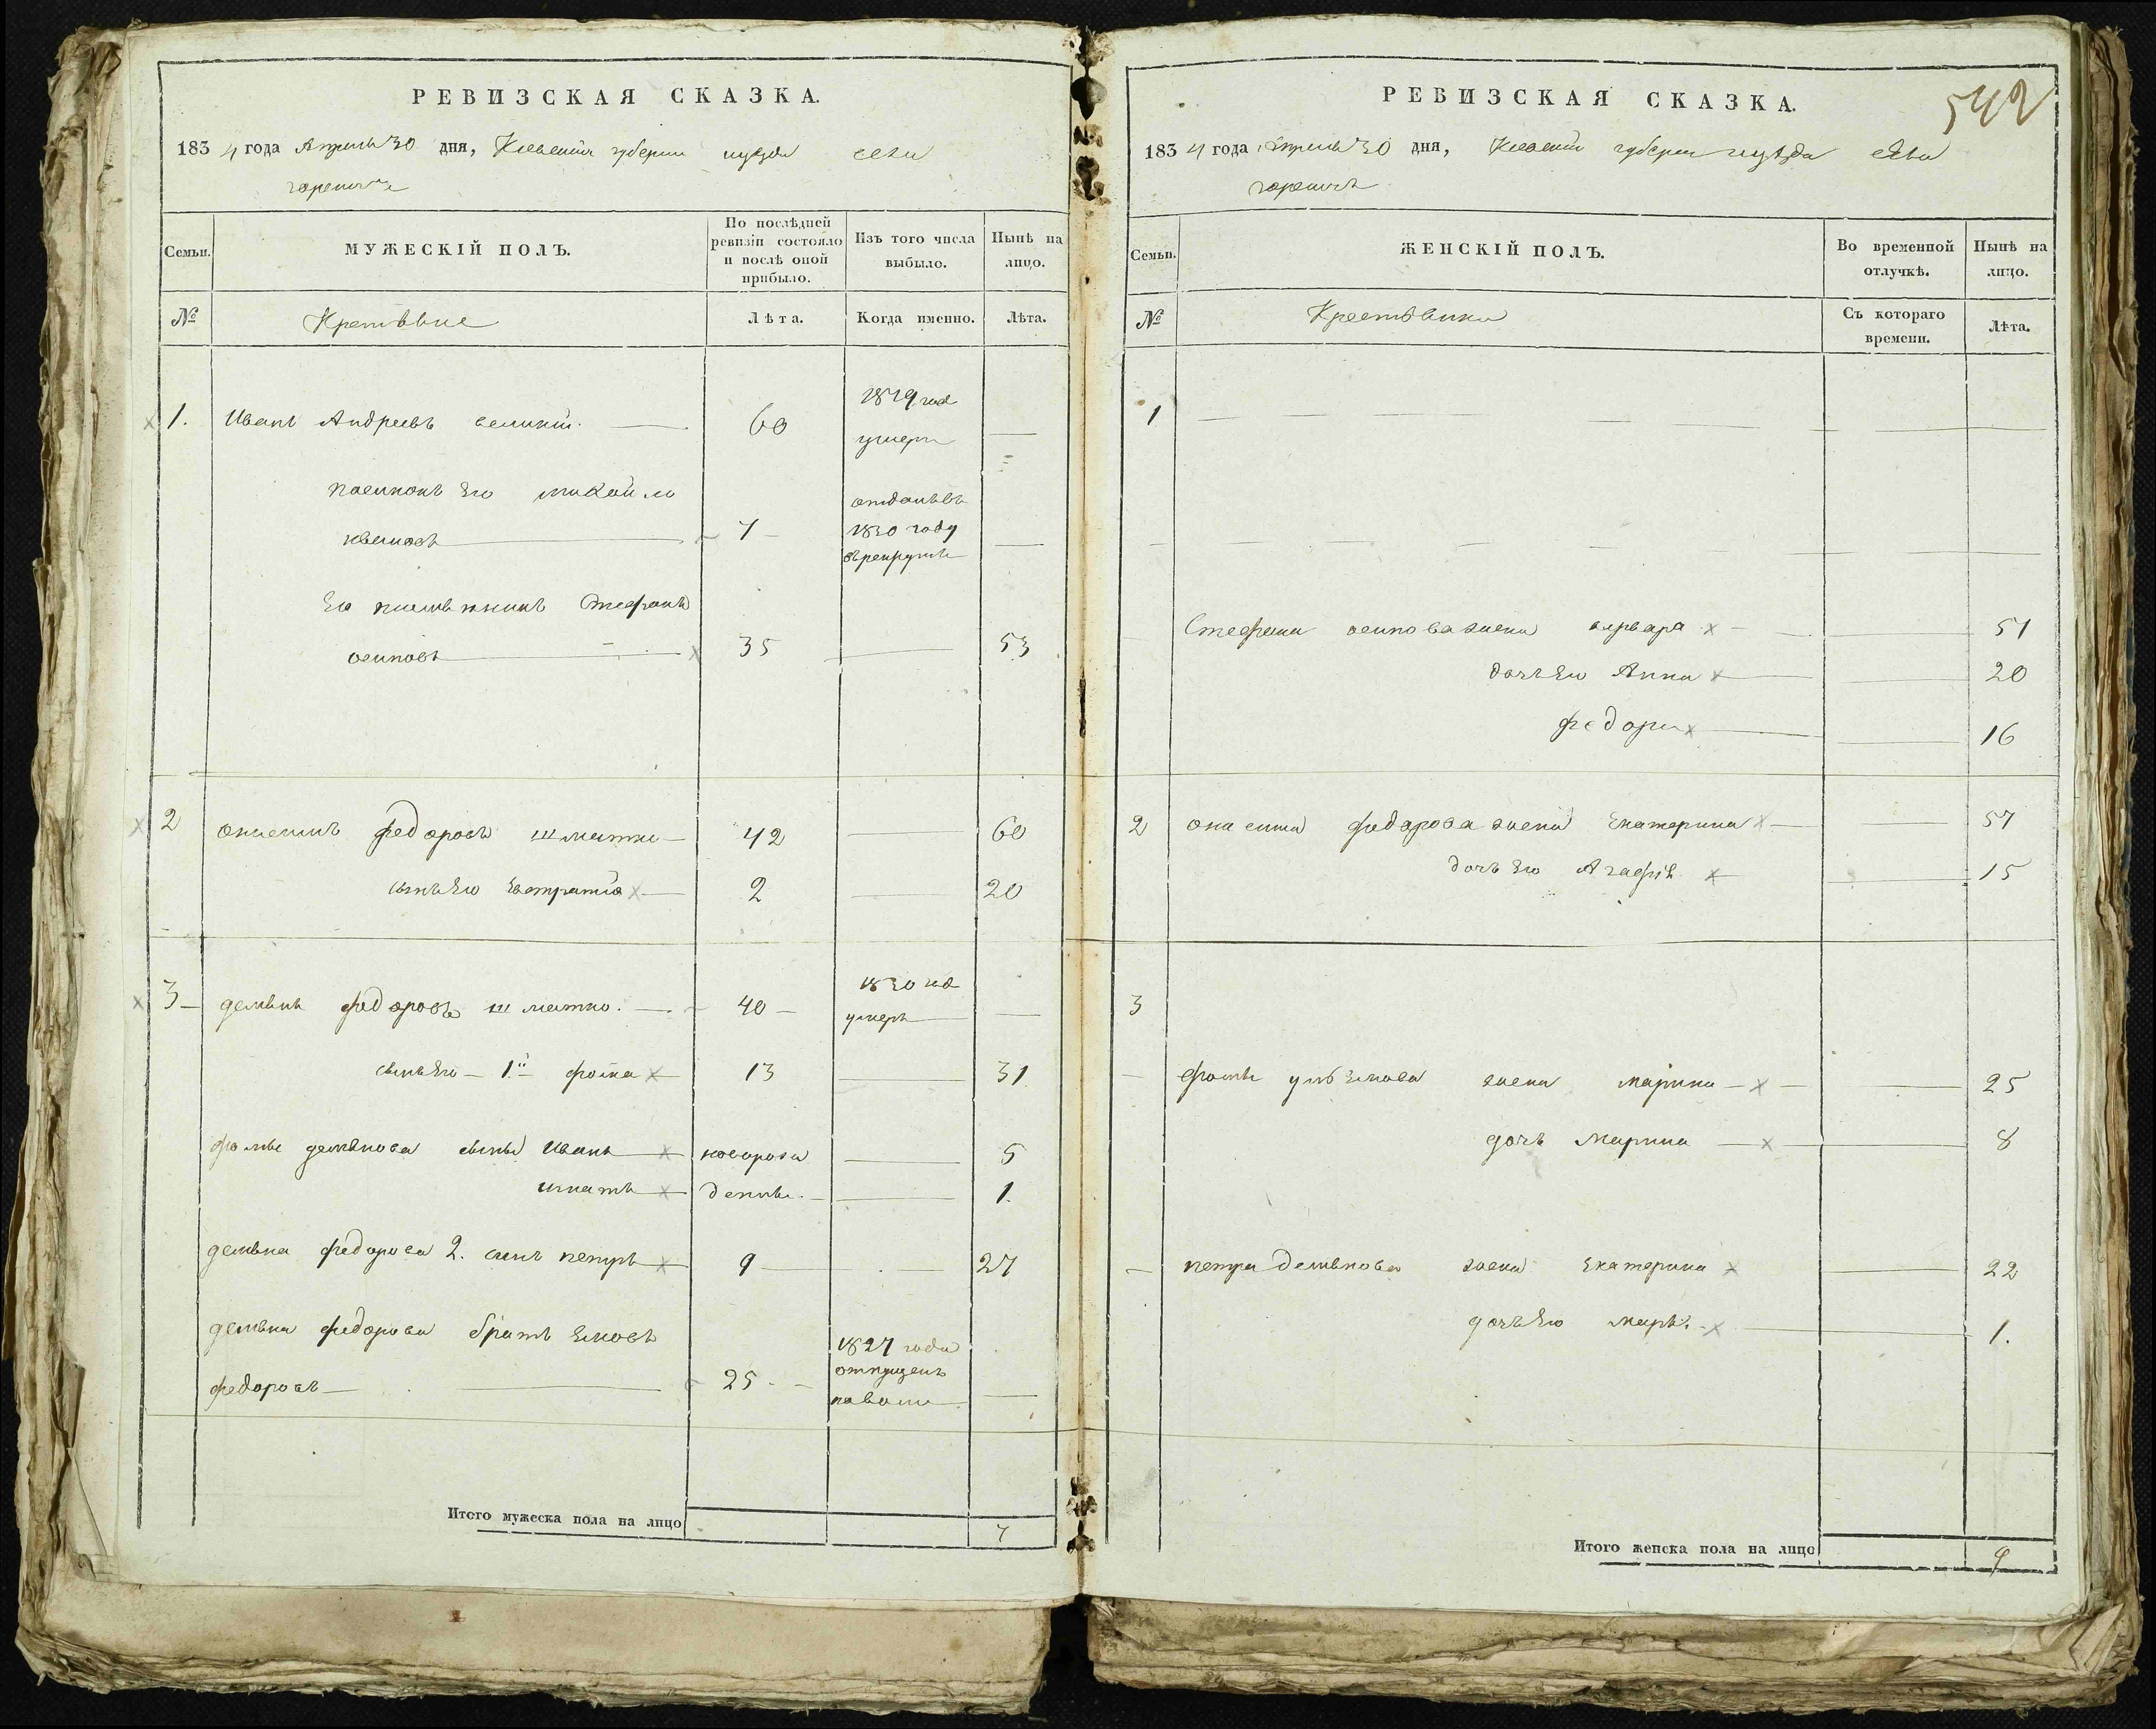 РЕВИЗСКАЯ СКАЗКА.
183 4 года Апреля 30 дня, Киевской губернии уезда села
горенич
Семьи.
МУЖЕСКІЙ ПОЛЪ.
По послѣдней ревизіи состояло и послѣ оной прибыло.
Изъ того числа выбыло.
Нынѣ на лицо.
№
Крестьяне
Лѣта.
Когда именно.
Лѣта.
1. Иванъ Андреевъ великий. 60 1819 года умеръ
его михайло
7 отданъ въ 1830 году въ рекруты
Его племянникъ Стефанъ
осиповъ 35 53
2 онисимъ федоровъ шматко 42 60
сынъ Его Евтратий 2 20
3 демянъ федоровъ шматко. 40 1830 года умеръ
сынъ Его 1й фома 13 31
фомы демянова сыны Иванъ новорож 5
игнатъ денны. 1.
демяна федорова 2. сынъ петръ 9 27
демяна федорова братъ
федоровъ 25 1827 года отпущенъ на волю
Итого мужеска пола на лицо 7
РЕВИЗСКАЯ СКАЗКА.
542
183 4 года Апреля 30 дня, Киевской губернии уѣзда села
горенич
Семьи.
ЖЕНСКІЙ ПОЛЪ.
Во временной отлучкѣ.
Нынѣ на лицо.
№
Крестьянки
Съ котораго времени.
Лѣта.
1
Стефана осипова жена варвара 51
дочь Его Анна 20
федора 16
2 онисима федорова жена Екатерина 57
дочь Его Агафія 15
3
фомы жена марина 25
дочь Марина 8
петра Демянова жена Екатерина 22
дочь Его марья 1.
Итого женска пола на лицо 9